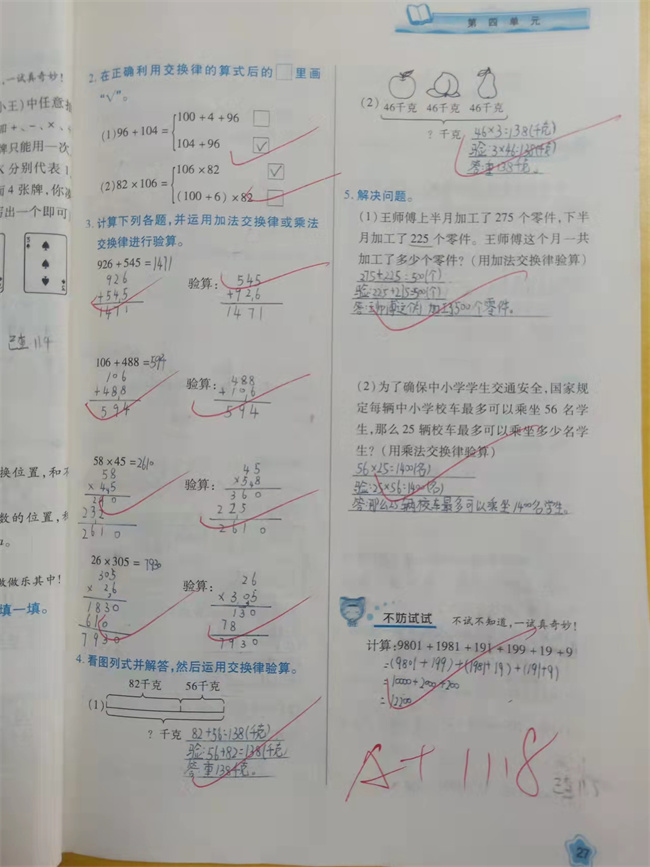 第四单元
一试真奇妙！
小王）中任意抽
卩+、-、×、
牌只能用一次
K 分别代表 1
面 4 张牌，你
写出一个即可
已查 114
换位置，和不
数的位置，积
做做乐其中！
填一填。
2. 在正确利用交换律的算式后的□里画
“√”。
(1)96 + 104 =
100 + 4 + 96
104 + 96 √
(2)82 × 106 =
106 × 82 √
(100 + 6) × 82
3. 计算下列各题，并运用加法交换律或乘法
交换律进行验算。
926 + 545 = 1471
926
+545
1471
验算：
545
+926
1471
106 + 488 = 594
106
+488
594
验算：
488
+106
594
58 × 45 = 2610
58
×45
290
232
2610
验算：
45
×58
360
225
2610
26 × 305 = 7930
305
×26
1830
610
7930
验算：
26
×305
130
78
7930
4. 看图列式并解答，然后运用交换律验算。
82千克 56千克
(1)
? 千克
82+56=138(千克)
验:56+82=138(千克)
答:重138千克。
(2)
46千克 46千克 46千克
? 千克
46×3=138(千克)
验:3×46=138(千克)
答:重138千克。
5. 解决问题。
(1)王师傅上半月加工了 275 个零件，下半
月加工了 225 个零件。王师傅这个月一共
加工了多少个零件？(用加法交换律验算)
275+225=500(个)
验:225+275=500(个)
答:王师傅这个月加工500个零件。
(2)为了确保中小学学生交通安全，国家规
定每辆中小学校车最多可以乘坐 56 名学
生，那么 25 辆校车最多可以乘坐多少名学
生？(用乘法交换律验算)
56×25=1400(名)
验:25×56=1400(名)
答:那么25辆校车最多可以乘坐1400名学生。
不妨试试 不试不知道，一试真奇妙！
计算:9801 + 1981 + 191 + 199 + 19 + 9
=(9801+199)+(1981+19)+(191+9)
=10000+2000+200
=12200
A+ 1118
27